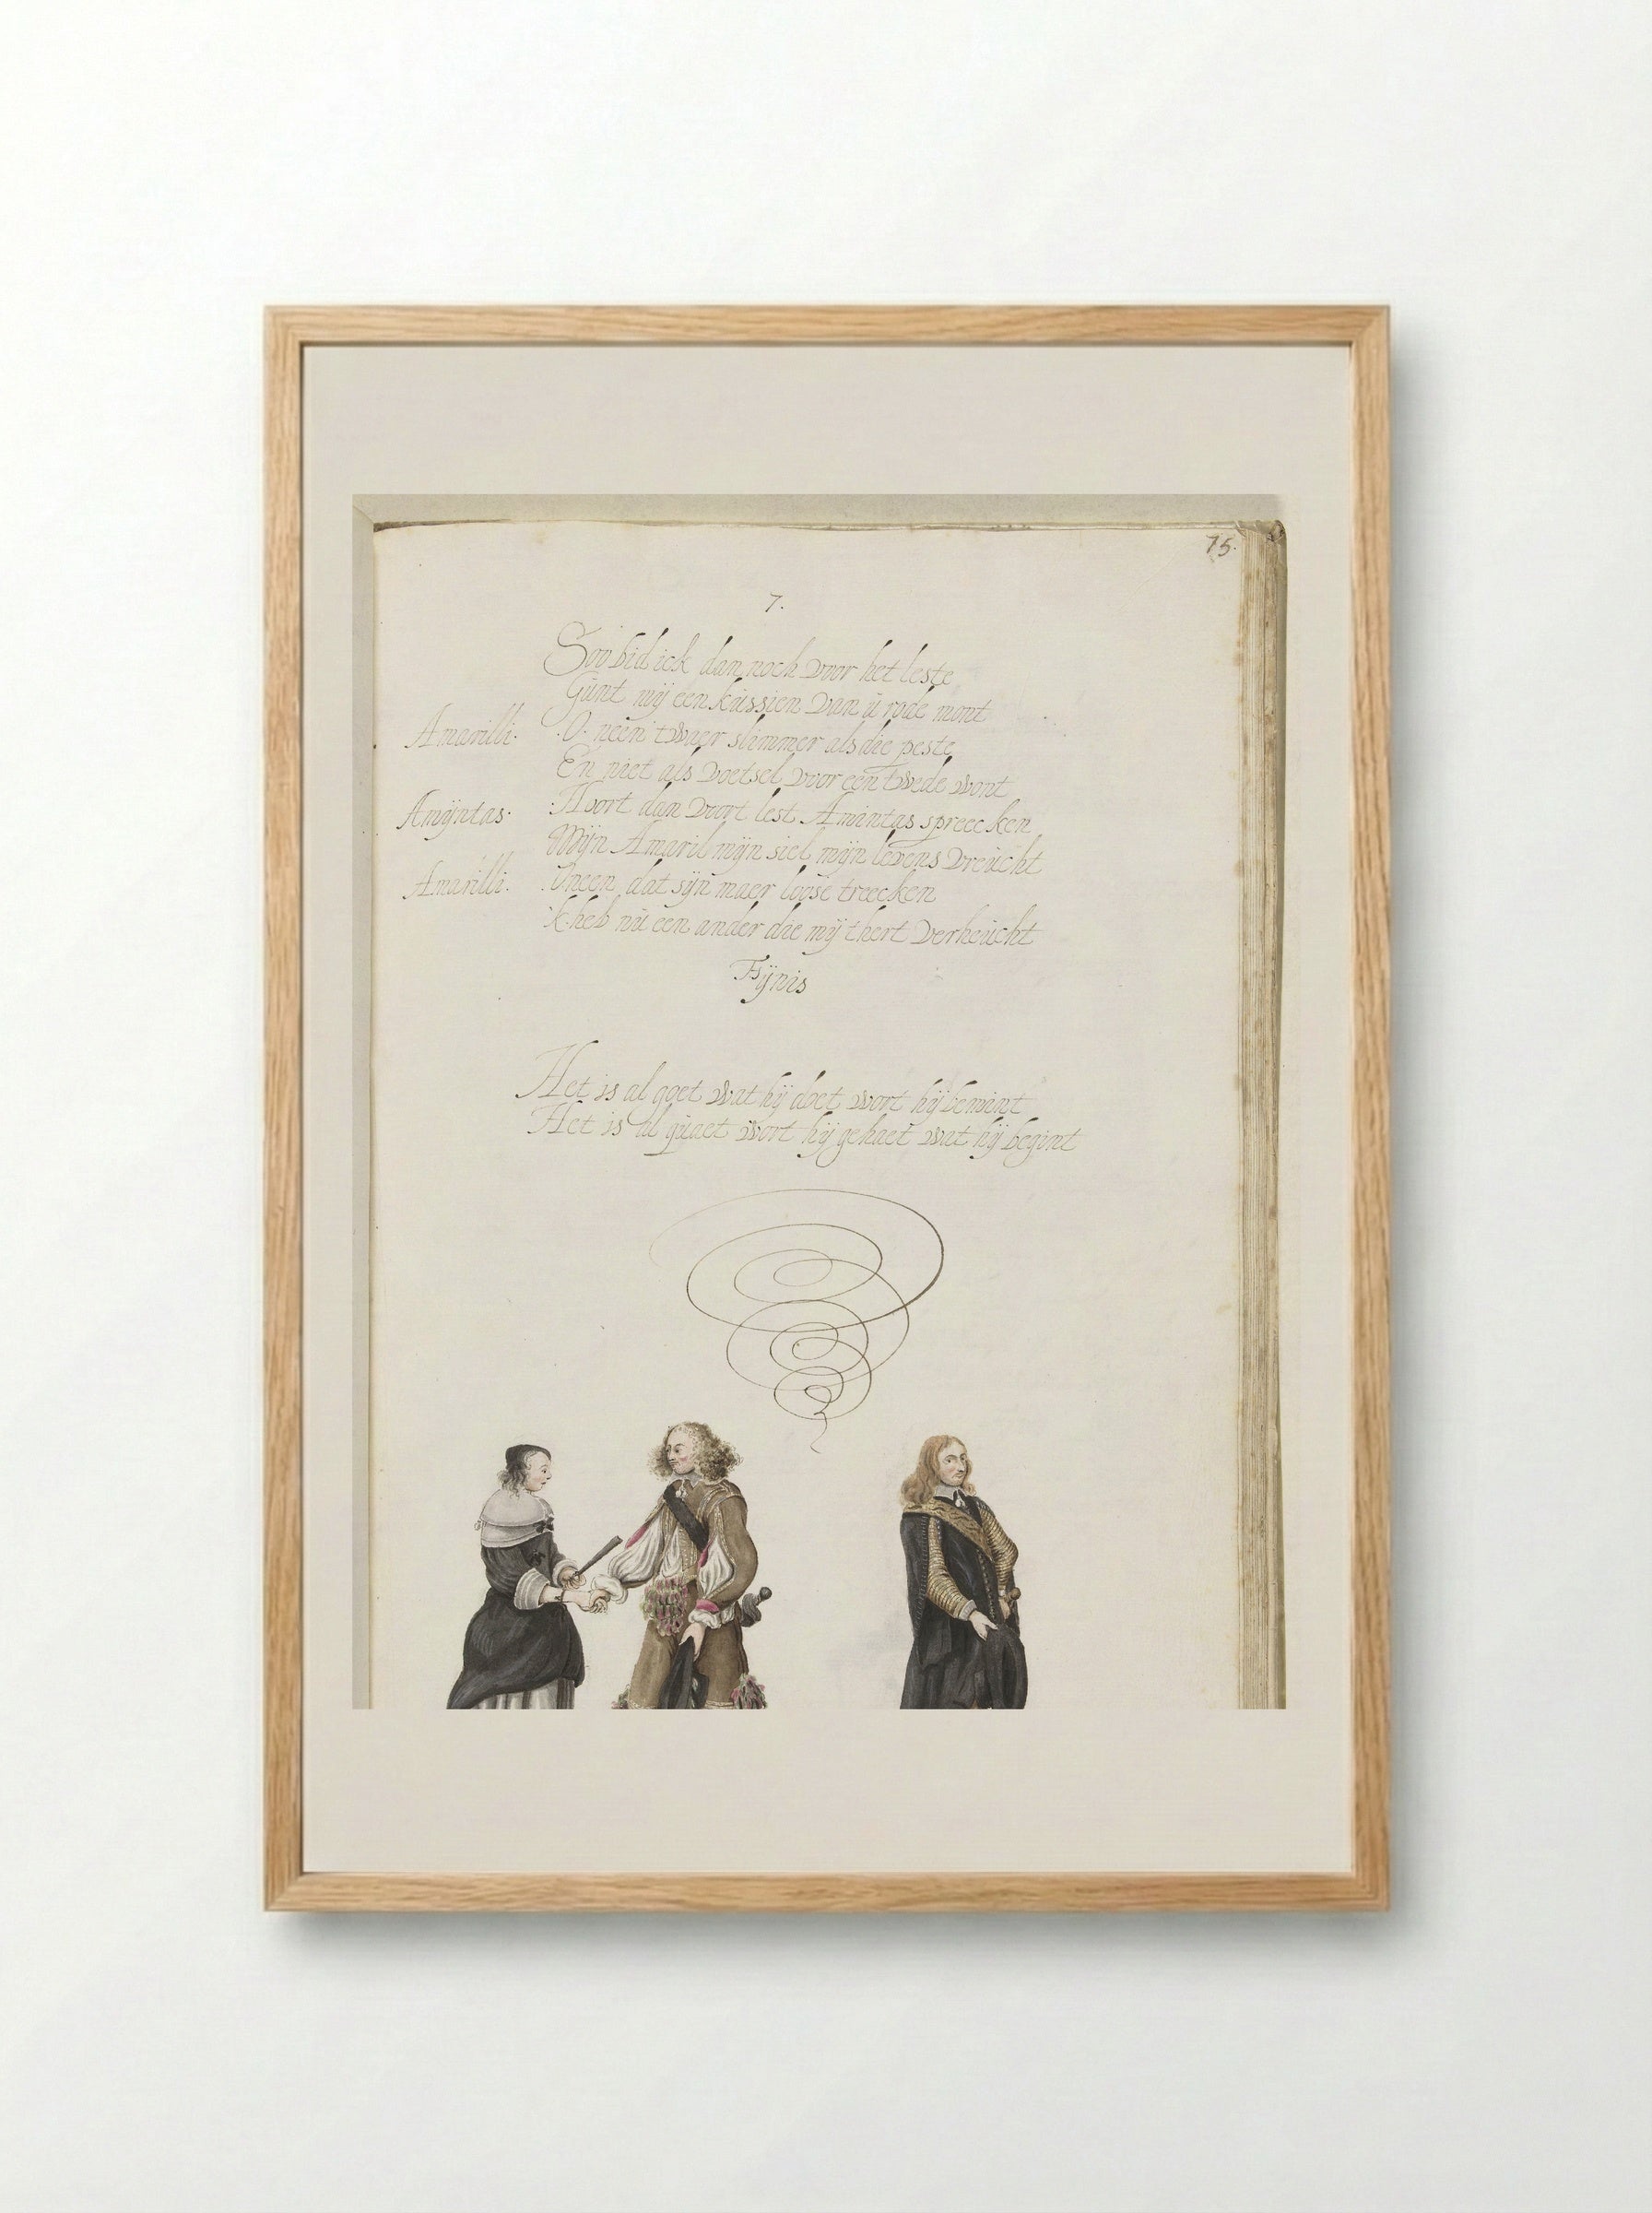 75.
7.
Soo bid ick dan noch voor het leste
Gunt mij een kussien van ü rode mont
Amarilli. O neen twaer slimmer als die peste
En niet als voetsel voor een twede wont
Amÿntas. Hoort dan voort lest Amintas spreecken
Mijn Amaril mijn siel mijn levens vreücht
Amarilli. Oneen dat sÿn maer loose treecken
k heb nü een ander die mij thert verheücht
Fÿnis
Het is al goet wat hÿ doet wort hÿ bemint
Het is al qüaet wort hÿ gehaet wat hÿ begint